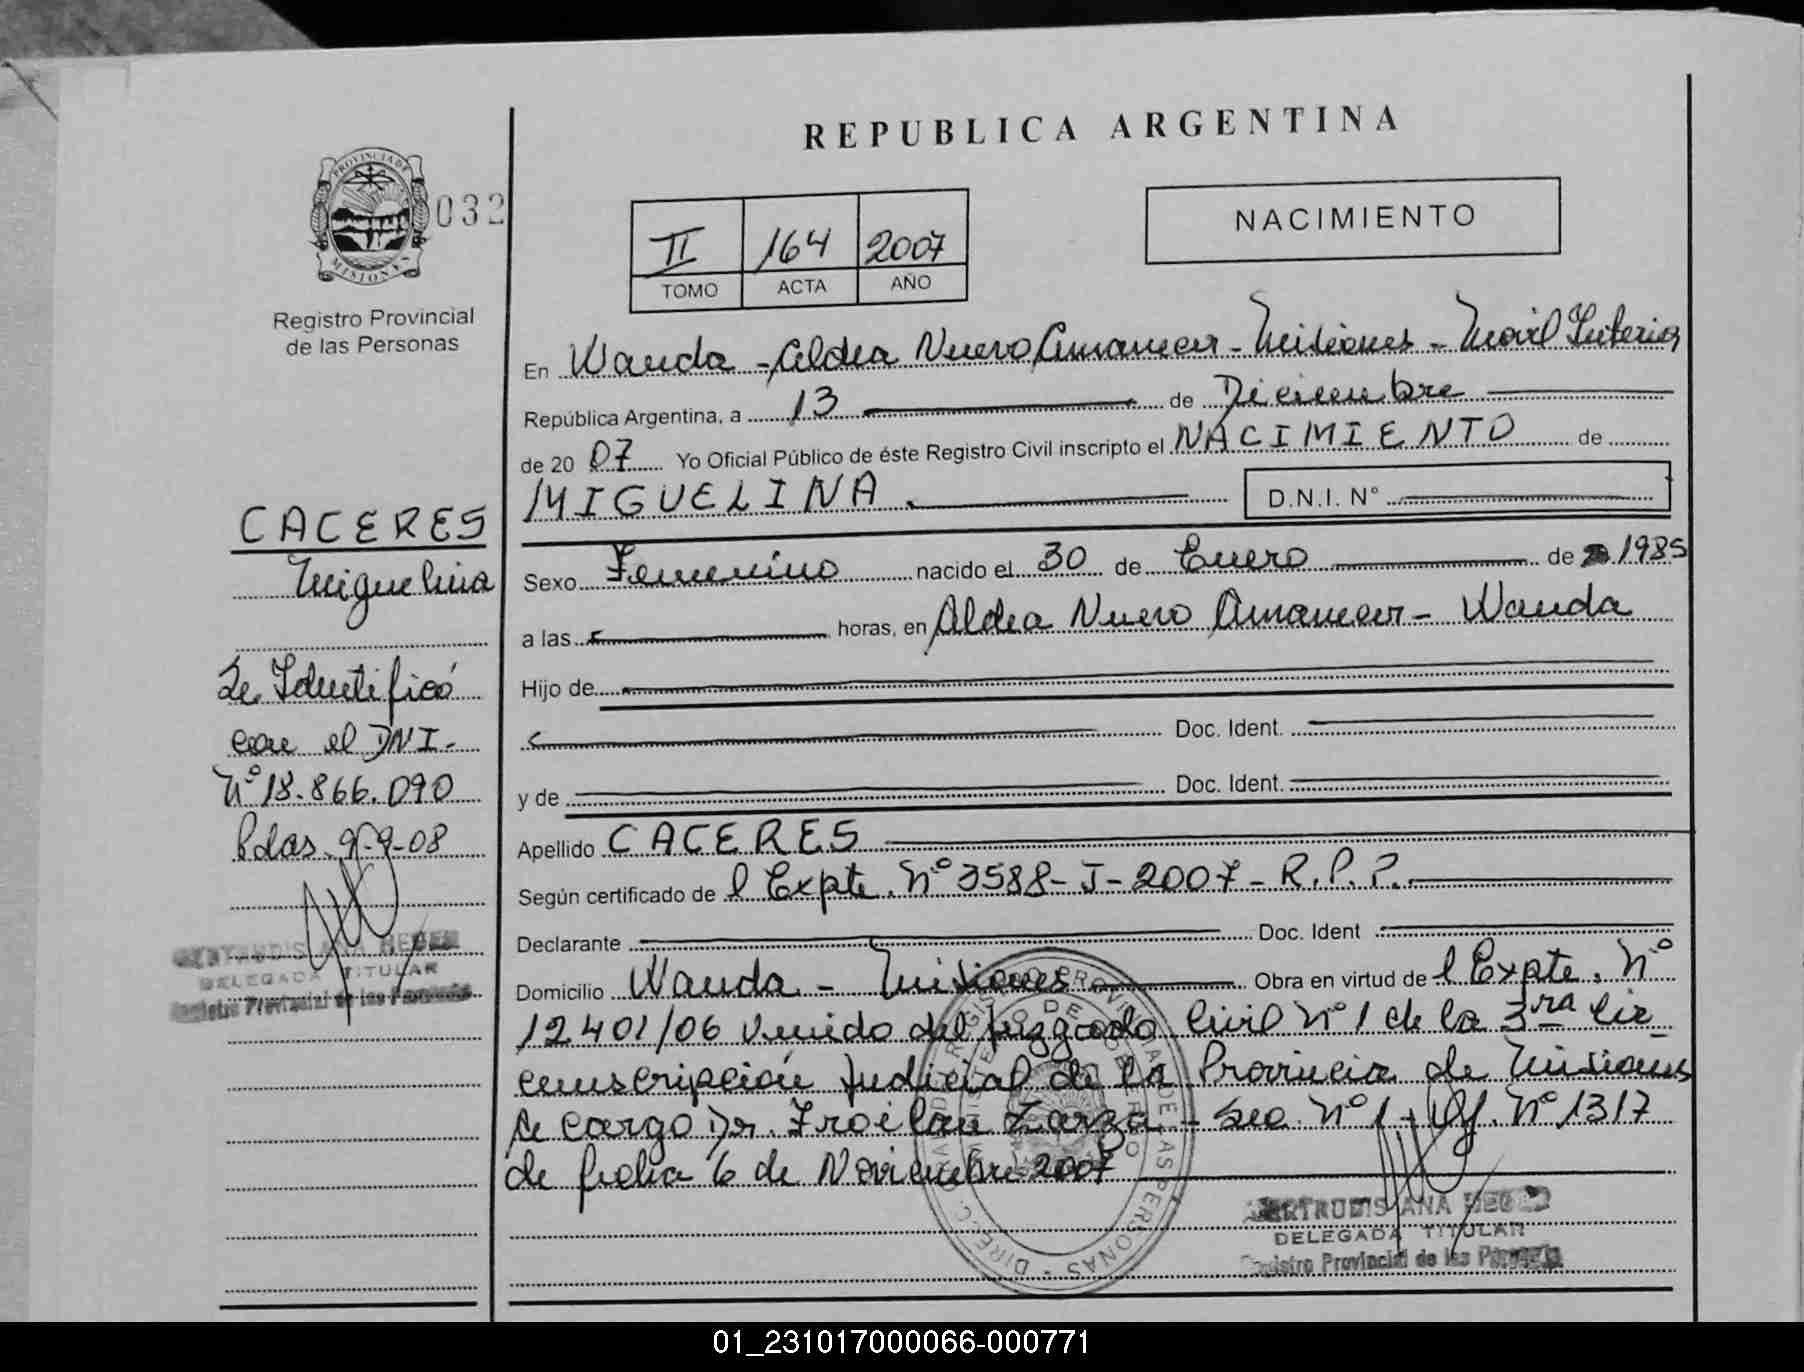 REPUBLICA ARGENTINA
PROVINCIA DE
MISIONES
032
Registro Provincial
de las Personas
II 164 2007
TOMO ACTA AÑO
NACIMIENTO
En Wanda - Aldea Nuevo Amanecer - Misiones - Movil Interior
República Argentina, a 13 de Diciembre
de 20 07 Yo Oficial Público de éste Registro Civil inscripto el NACIMIENTO de
MIGUELINA D.N.I. N°
Sexo Femenino nacido el 30 de Enero de 1985
a las horas, en Aldea Nuevo Amanecer - Wanda
Hijo de
Doc. Ident.
y de Doc. Ident.
Apellido CACERES
Según certificado de l Expte. N° 3588-J-2007-R.P.P.
Declarante Doc. Ident
Domicilio Wanda - Misiones Obra en virtud de l Expte. N°
12401/06 venido del Juzgado Civil N° 1 de la 3ra Cir
cunscripción Judicial de la Provincia de Misiones
a cargo Dr. Froilan Zarza - Sec. N° 1 - Of. N° 1317
de fecha 6 de Noviembre 2007
CACERES
Miguelina
Se Identificó
con el DNI-
N° 18.866.090
Pdas. 9-9-08
GERTRUDIS ANA
DELEGADA TITULAR
Registro Provincial de las Personas
GERTRUDIS ANA
DELEGADA TITULAR
Registro Provincial de las Personas
01_231017000066-000771